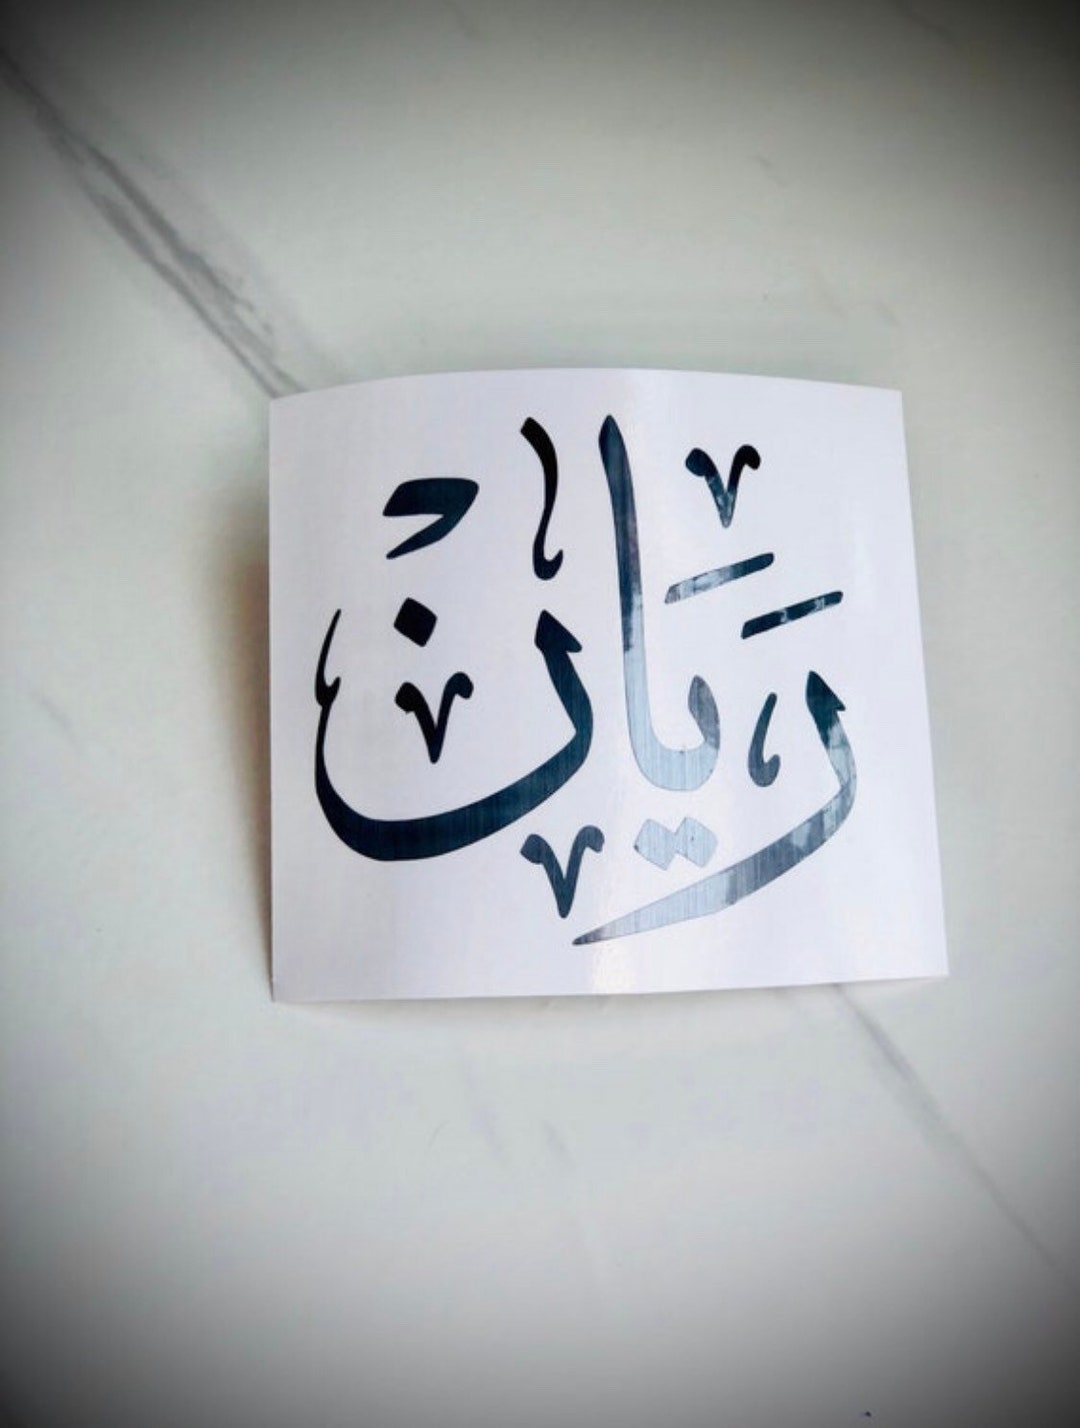 ريان